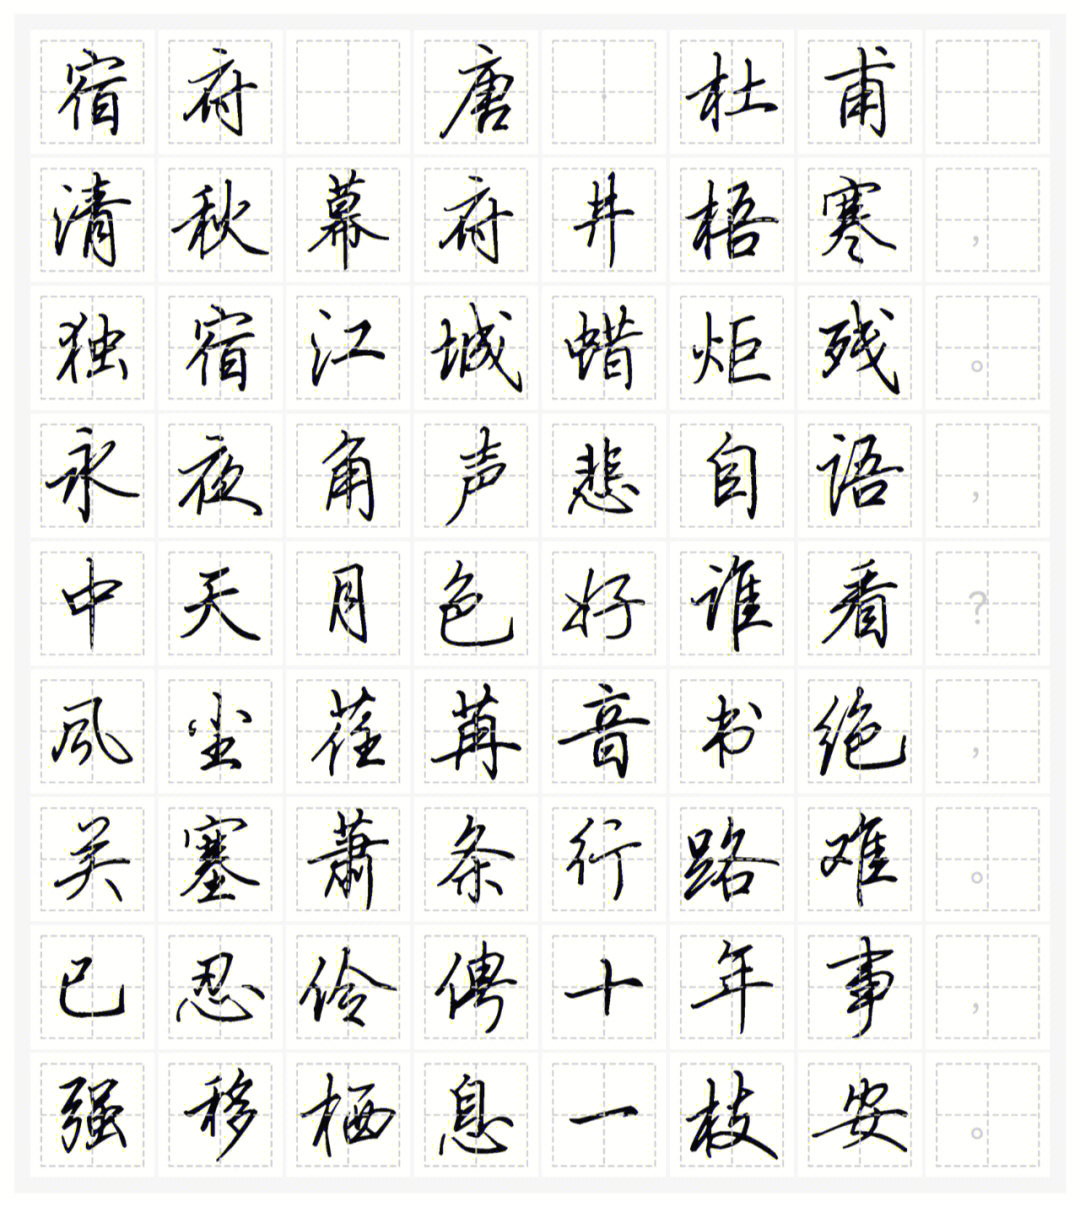 宿府 唐·杜甫
清秋幕府井梧寒，
独宿江城蜡炬残。
永夜角声悲自语，
中天月色好谁看？
风尘荏苒音书绝，
关塞萧条行路难。
已忍伶俜十年事，
强移栖息一枝安。